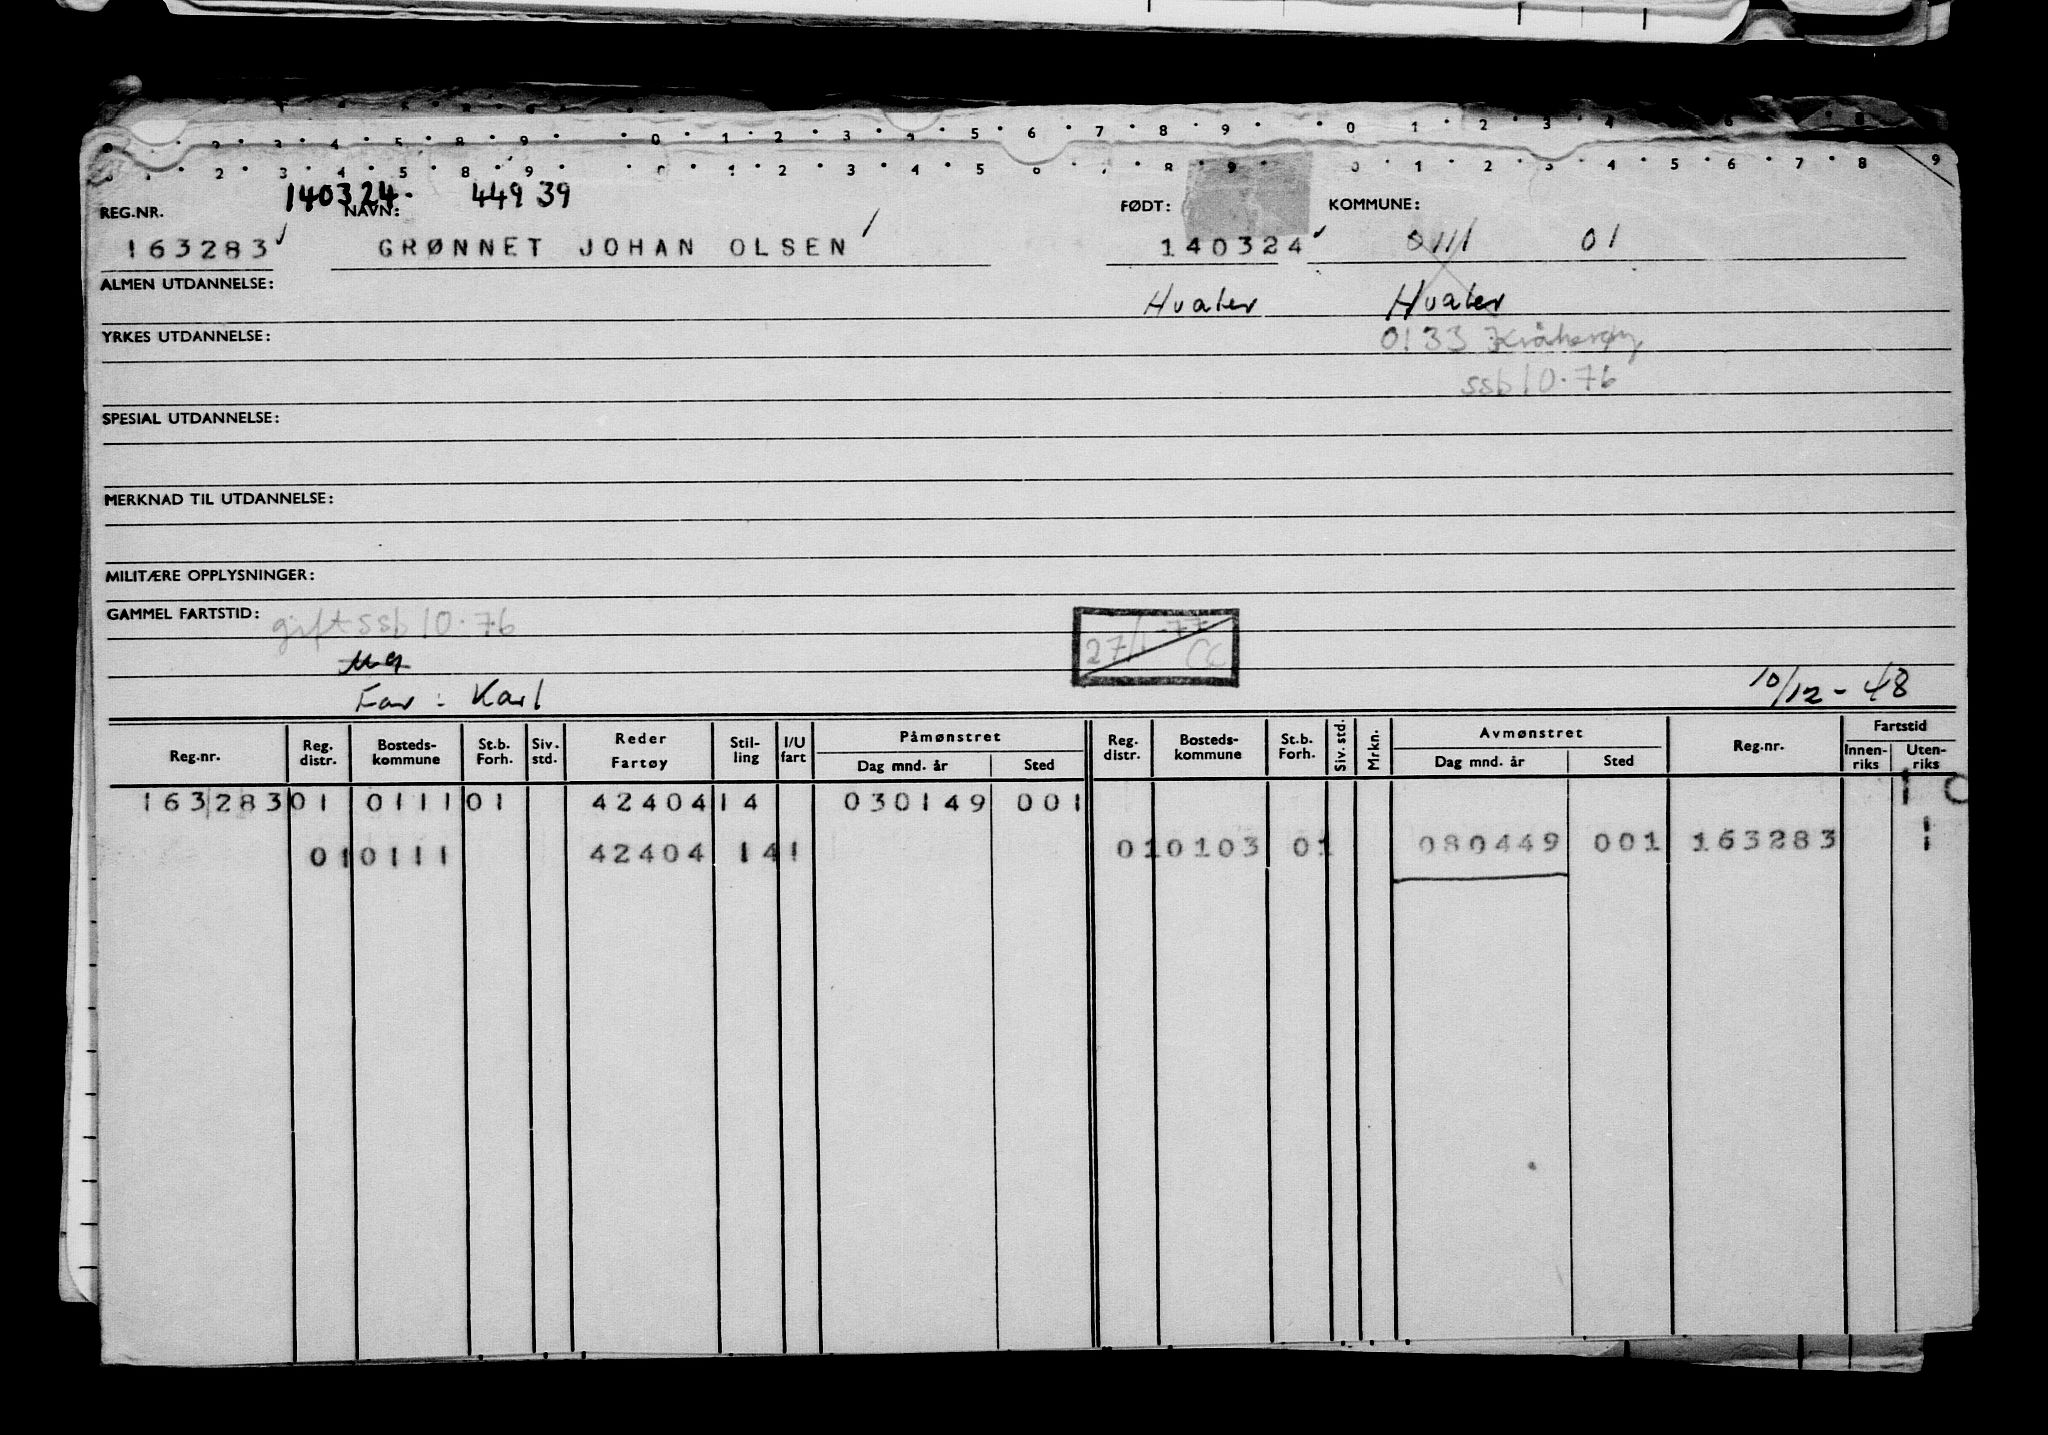 2 3 4 5 8 9 0 1 2 3 4 5 6 7 8 9 0 1 2 3 4 6 8
1 2 3 4 5 8 9 0 1 2 3 4 5 6 7 8 9 0 1 2 3 4 5 6 7 8 9
140324. 449 39
REG.NR. NAVN: FØDT: KOMMUNE:
163283 GRØNNET JOHAN OLSEN 140324 0111 01
ALMEN UTDANNELSE: Hvaler Hvaler
YRKES UTDANNELSE: 0133 Kråkerøy
ssb 10.76
SPESIAL UTDANNELSE:
MERKNAD TIL UTDANNELSE:
MILITÆRE OPPLYSNINGER:
GAMMEL FARTSTID: gift ssb 10.76
27/1-77 CC
ug
Far: Karl 10/12-48
Reg.nr. Reg. distr. Bosteds-kommune St.b. Forh. Siv. std. Reder Fartøy Stil-ling I/U fart Påmønstret Dag mnd. år Sted Reg. distr. Bosteds-kommune St.b. Forh. Siv. std. Mrkn. Avmønstret Dag mnd. år Sted Reg.nr. Fartstid Innen-riks Uten-riks
163283 01 0111 01 42404 14 030149 001 1 0
01 0111 42404 14 1 01 0103 01 080449 001 163283 1